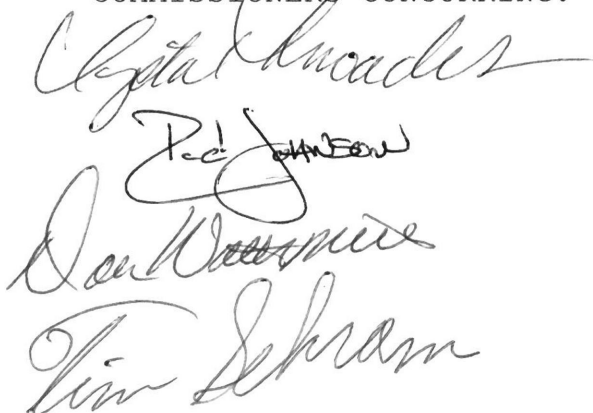 COMMISSIONERS CONCURRING:
Crystal Rhoades
Rod Johnson
Tim Schram